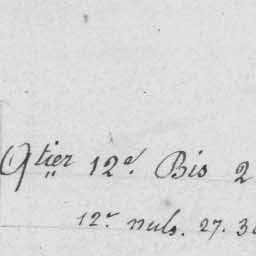 Qtier 12e. Bis 2
12r nuls. 27. 3